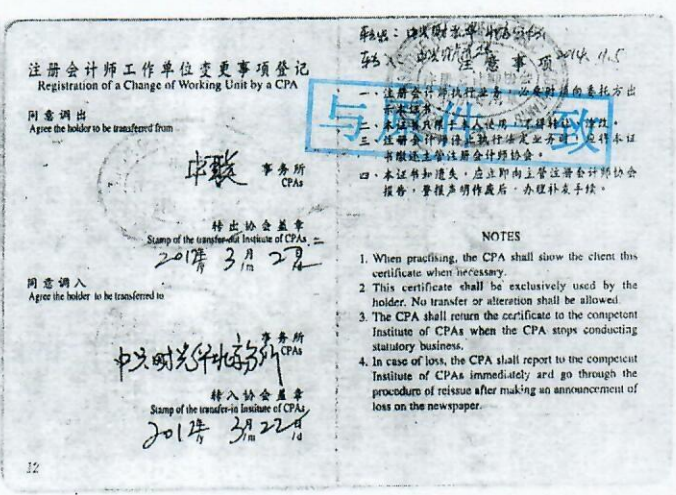 注册会计师工作单位变更事项登记
Registration of a Change of Working Unit by a CPA
同意调出
Agree the holder to be transferred from
事务所
CPAs
转出协会盖章
Stamp of the transfer-out Institute of CPAs
2012年 3月 22日
同意调入
Agree the holder to be transferred to
事务所
CPAs
转入协会盖章
Stamp of the transfer-in Institute of CPAs
2012年 3月 22日
12
2014. 11.5
注意事项
与原件一致
一、注册会计师执行业务，必要时须向委托方出
示本证书。
二、本证书只限于本人使用，不得转让、涂改。
三、注册会计师停止执行法定业务时，应将本证
书缴还主管注册会计师协会。
四、本证书如遗失，应立即向主管注册会计师协会
报告，登报声明作废后，办理补发手续。
NOTES
1. When practising, the CPA shall show the client this
certificate when necessary.
2 This certificate shall be exclusively used by the
holder. No transfer or alteration shall be allowed.
3. The CPA shall return the certificate to the competent
Institute of CPAs when the CPA stops conducting
statutory business.
4. In case of loss, the CPA shall report to the competent
Institute of CPAs immediately and go through the
procedure of reissue after making an announcement of
loss on the newspaper.